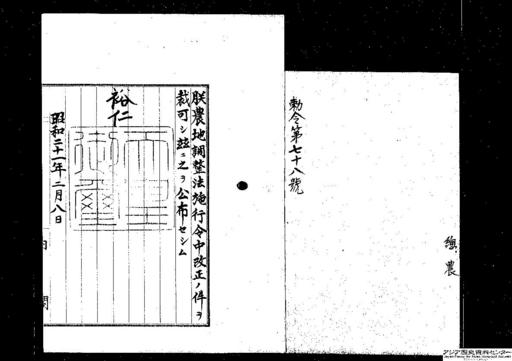 勅令第七十八號
朕農地調整法施行令中改正ノ件ヲ
裁可シ茲ニ之ヲ公布セシム
裕仁
天皇御璽
昭和二十一年二月八日
内閣
農
アジア歴史資料センター